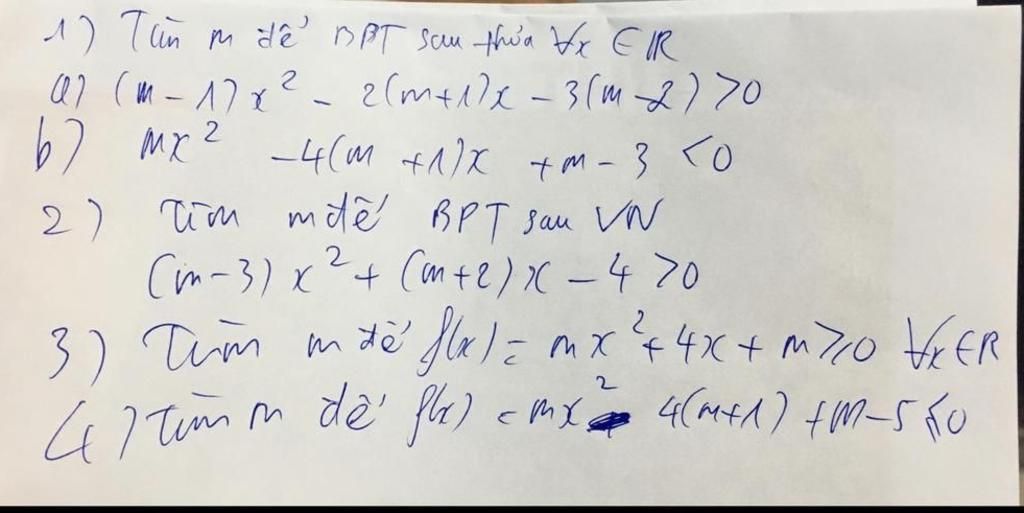 1) Tìm m để BPT sau thỏa ∀x ∈ R
a) (m-1)x² - 2(m+1)x - 3(m-2) > 0
b) mx² -4(m+1)x + m - 3 < 0
2) Tìm m để BPT sau VN
(m-3)x² + (m+2)x - 4 > 0
3) Tìm m để f(x) = mx² + 4x + m ≥ 0 ∀x ∈ R
4) Tìm m để f(x) = mx² 4(m+1) + m - 5 ≤ 0